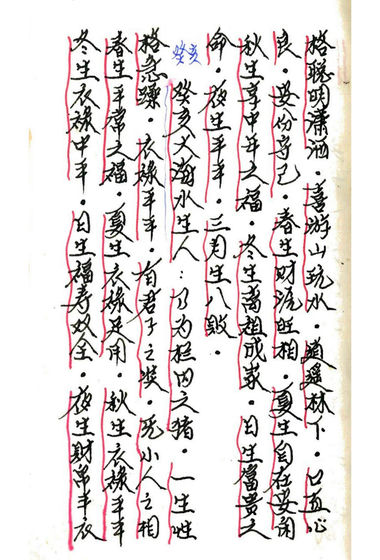 格聪明潇洒．喜游山玩水．逍遥林下．口直心
良．安份守己．春生财源旺相．夏生自在安闲
秋生享中年之福．冬生离祖成家．日生富贵之
命．夜生平平．三月生八败．
癸亥
癸亥大海水生人：乃为栏内之猪．一生性
格急躁．衣禄平平．有君子之奖．无小人之相
春生平常之福．夏生衣禄足用．秋生衣禄平平
冬生衣禄中平．日生福寿双全．夜生财帛丰衣